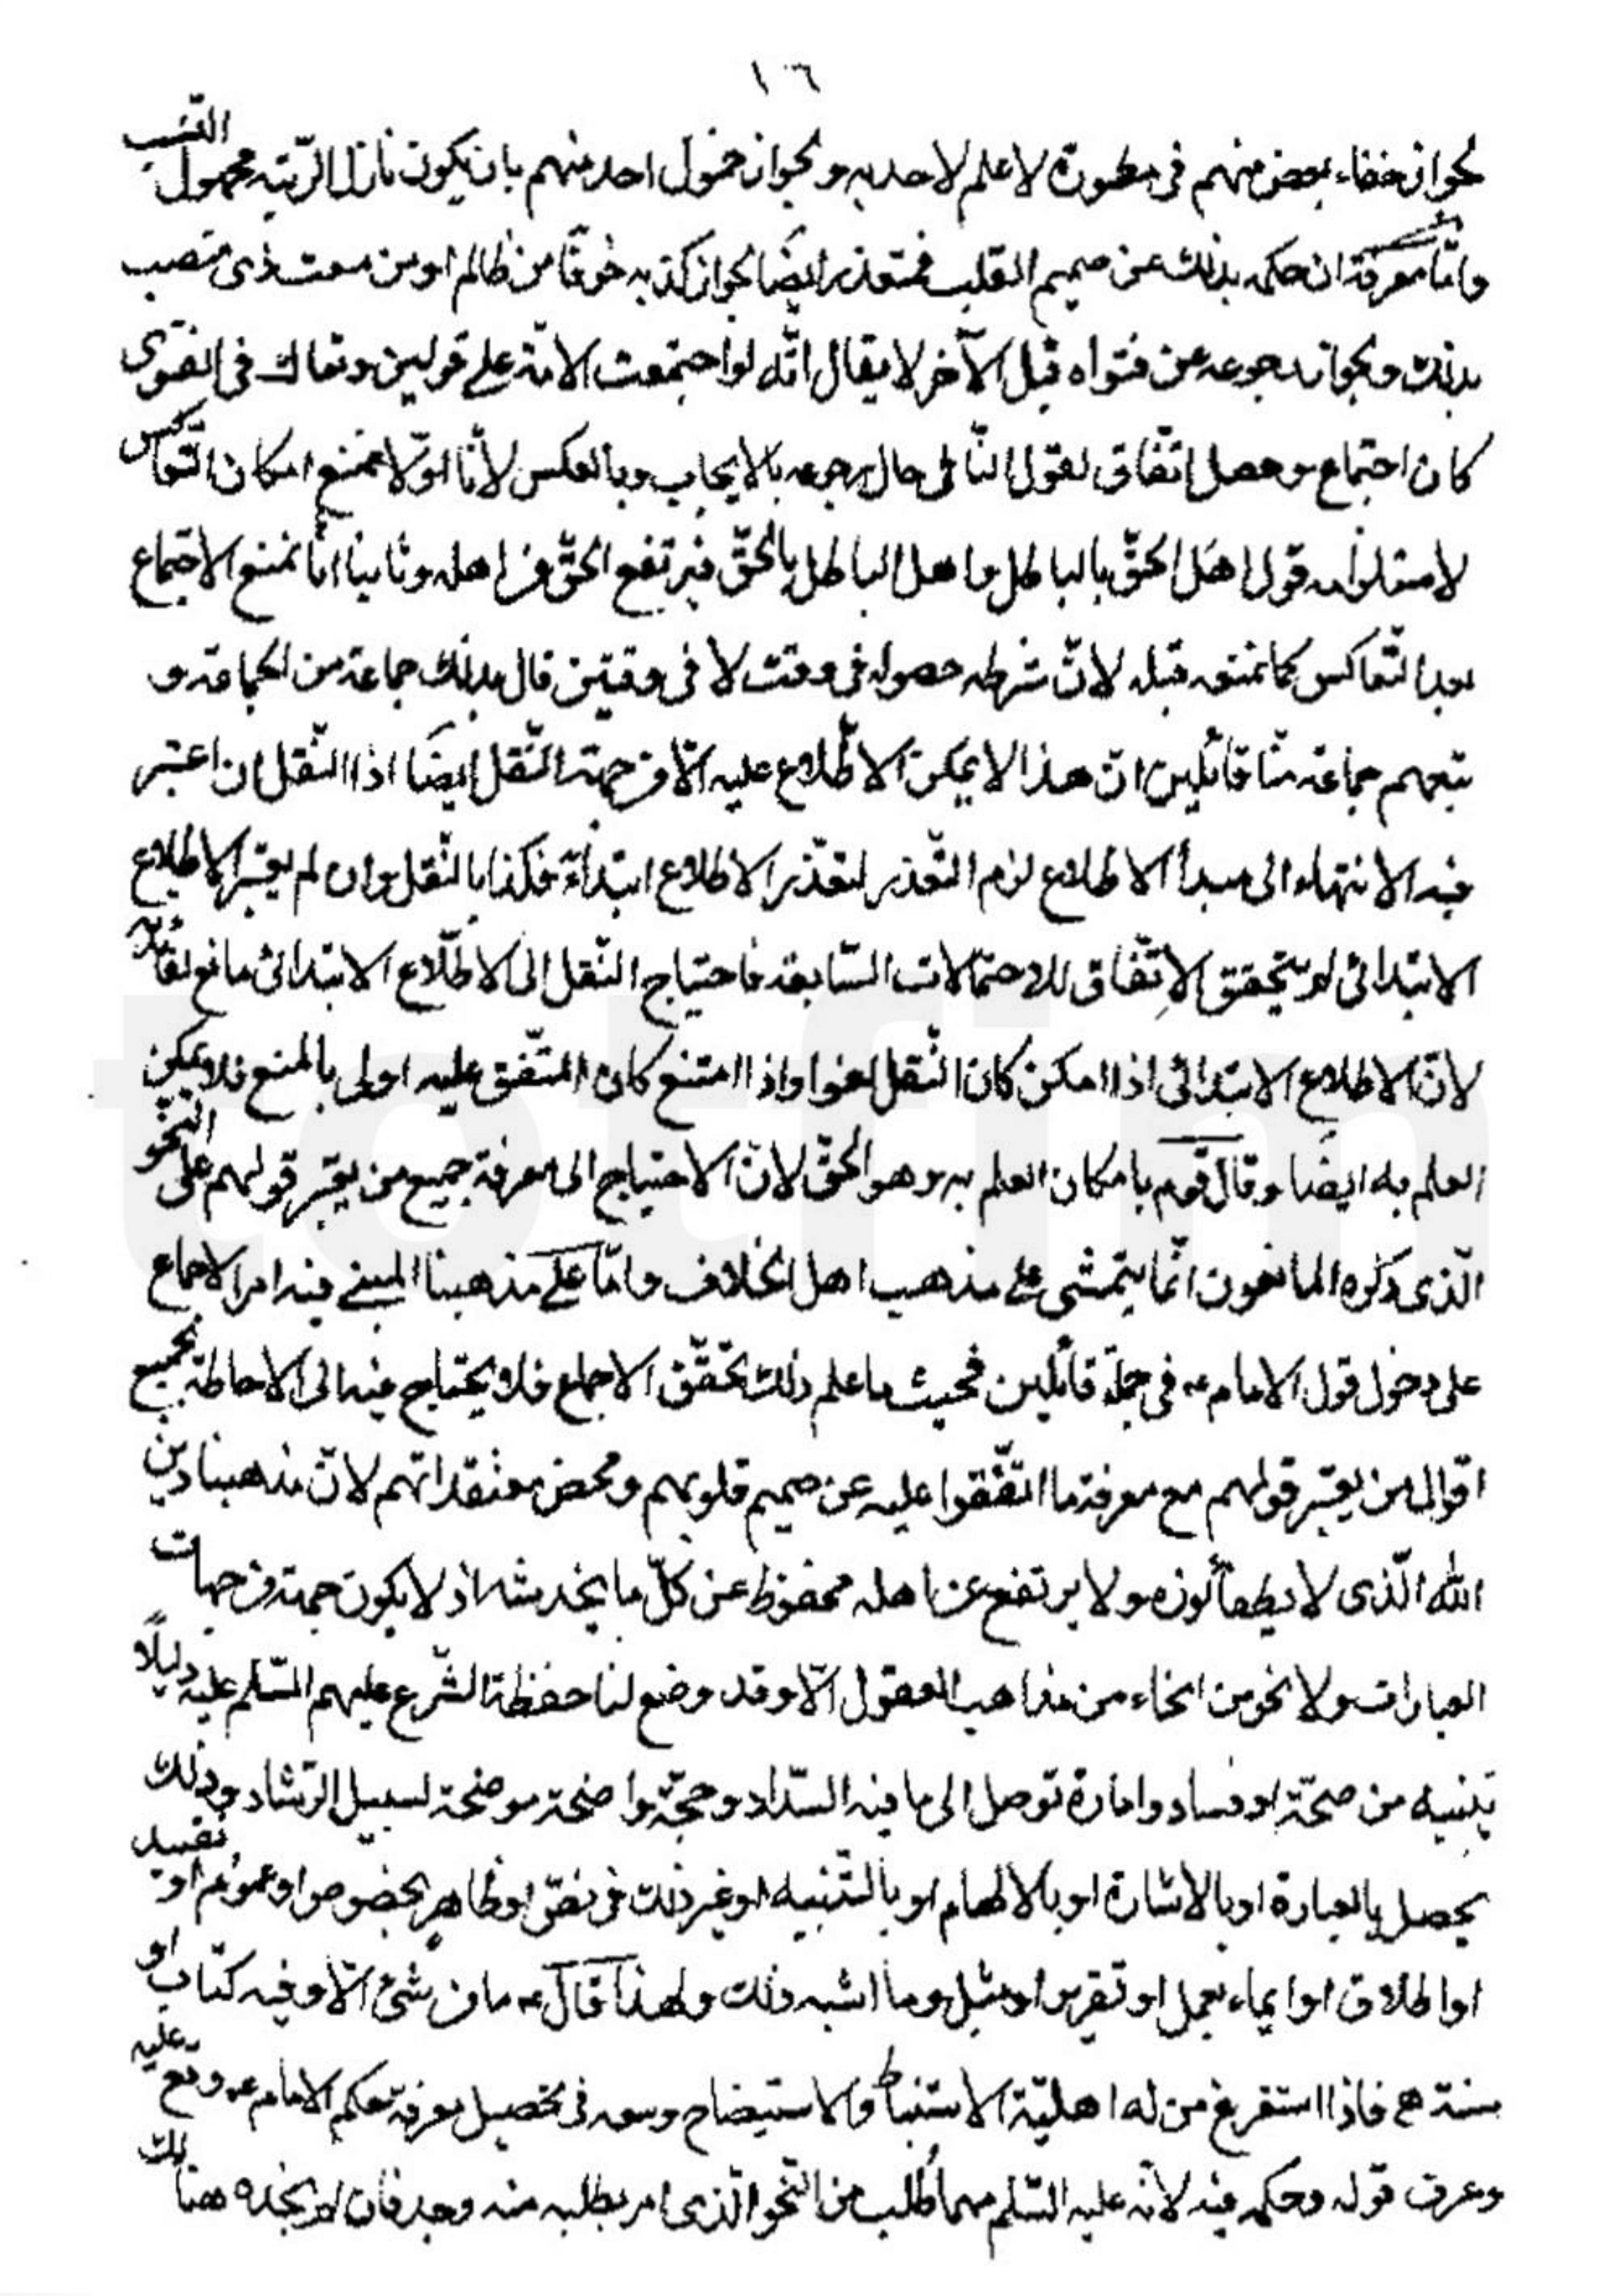 ١٦
لجواز خفاء بعض منهم فى مطمورة لا علم لاحد به ولجواز خمول احد منهم بان يكون نازل الرّتبة مجهول النّسب
وامّا معرفة ان حكمه بذلك عن صميم القلب فمتعذر ايضًا لجواز كذبه خوفًا من ظالم او من ذى منصب
بذلك ولجواز رجوعه عن فتواه قبل الآخر لا يقال انّه لو اجتمعت الامّة على قولين وتعاكسا فى الفتوى
كان اجتماع وحصل اتّفاق لقول النّافى حال رجوعه بالايجاب وبالعكس لأنّا اوّلا نمنع امكان التّعاكس
لاستلزامه قول اهل الحقّ بالباطل واهل الباطل بالحقّ فيرتفع الحقّ من اهله وثانيا انّا نمنع الاجتماع
بعد التّعاكس كما نمنعه قبله لانّ شرطه حصوله فى وقت لا فى وقتين قال بذلك جماعة من العامّة و
تبعهم جماعة منّا قائلين انّ هذا لا يمكن الاطّلاع عليه الّا من جهة النّقل ايضًا اذا النّقل ان اعتبر
فيه الانتهاء الى مبدأ الاطلاع لزم التّعذر لتعذّر الاطلاع ابتداءً فكذا بالنّقل وان لم يعتبر الاطلاع
الابتدائى لم يتحقق الاتّفاق للاحتمالات السّابقة فاحتياج النّقل الى الاطّلاع الابتدائى مانع لفائدته
لانّ الاطلاع الابتدائى اذا امكن كان النّقل لغوا واذا امتنع كان المتّفق عليه اولى بالمنع فلا يمكن
العلم به ايضًا وقال قوم بامكان العلم به وهو الحقّ لانّ الاحتياج الى معرفة جميع من يعتبر قولهم على النّحو
الّذى ذكره المانعون انّما يتمشى على مذهب اهل الخلاف وامّا على مذهبنا المبنى فيه امر الاجماع
على دخول قول الامام ع فى جملة قائلين فحيث ما علم ذلك تحقّق الاجماع فلا يحتاج فيه الى الاحاطة بجميع
اقوال من يعتبر قولهم مع معرفة ما اتّفقوا عليه عن صميم قلوبهم ومحض معتقداتهم لانّ مذهبنا دين
اللّه الّذى لا يطفأ نوره ولا يرتفع عن اهله محفوظ عن كلّ ما يخدشه اذ لا يكون جهة من جهات
العبارات ولا نحو من انحاء من مذاهب العقول الّا وقد وضع لنا حفظة الشّرع عليهم السّلم عليه دليلًا
تبنيه من صحّة او فساد وامارة توصل الى ما فيه السّداد وحجّة واضحة موضحة لسبيل الرّشاد وذلك
يحصل بالعبارة او بالاشارة او بالالهام او بالتّنبيه او غير ذلك من نصّ او ظاهر بخصوص او عموم او تقييد
او اطلاق او ايماء بعمل او تقرير او مثيل وما اشبه ذلك ولهذا قال ع ما من شئ الّا وفيه كتاب او
سنة فاذا استفرغ من له اهليّة الاستنباط والاستيضاح وسعه فى تحصيل معرفة حكم الامام ع وقع عليه
وعرف قوله وحكمه فيه لانّه عليه السّلم مهما طُلب من النّحو الّذى امر بطلبه منه وجد فان لم يجده هنالك